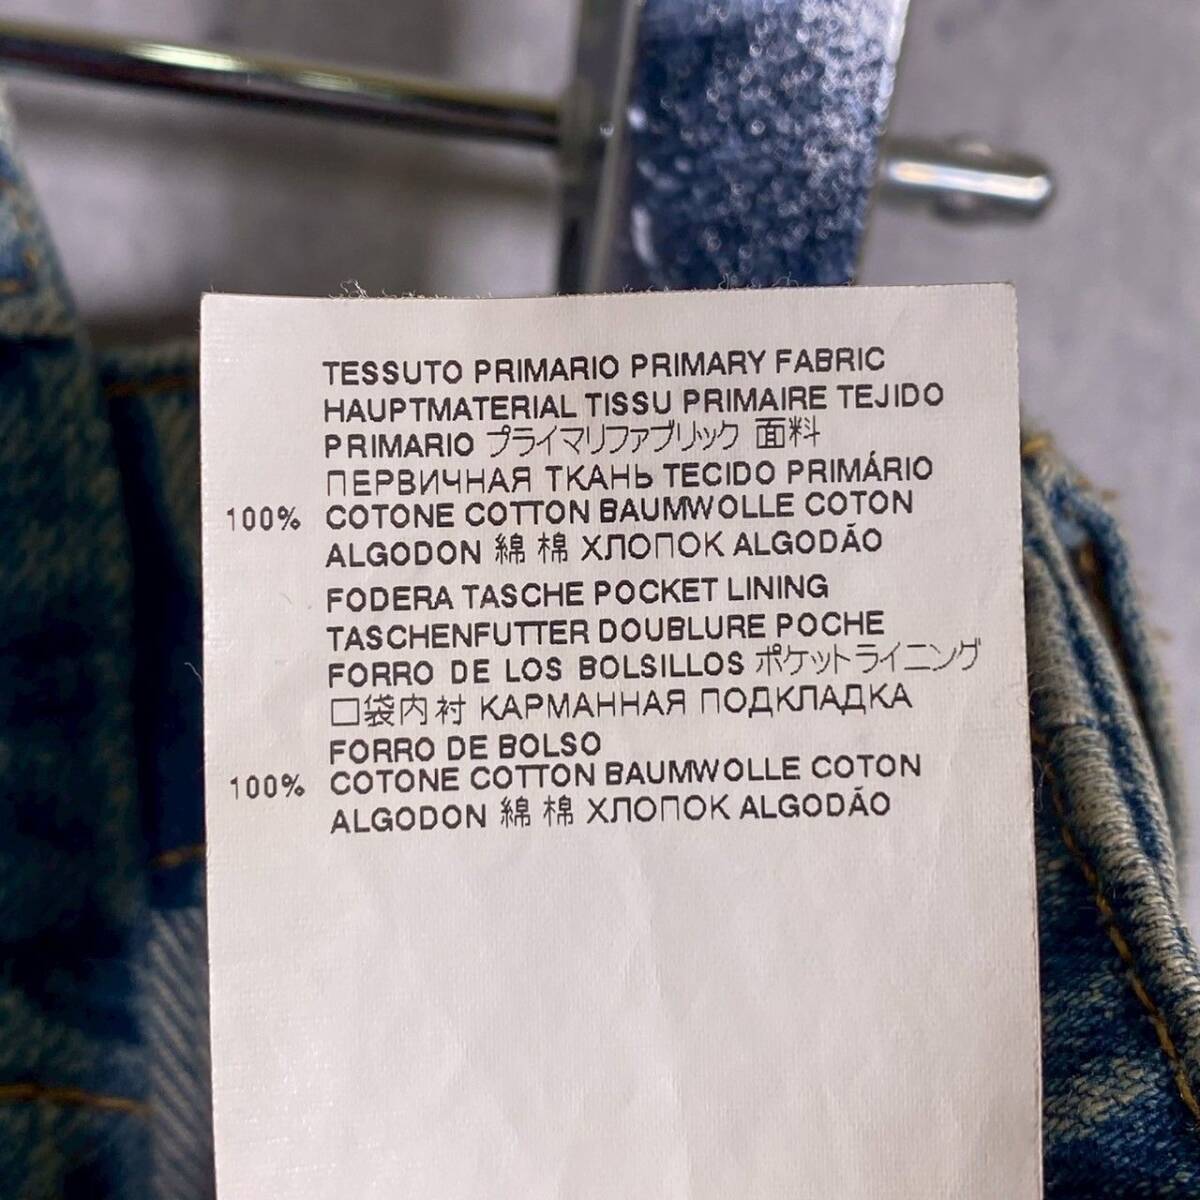 TESSUTO PRIMARIO PRIMARY FABRIC
HAUPTMATERIAL TISSU PRIMAIRE TEJIDO
PRIMARIO プライマリファブリック 面料
ПЕРВИЧНАЯ ТКАНЬ TECIDO PRIMÁRIO
100% COTONE COTTON BAUMWOLLE COTON
ALGODON 綿 棉 ХЛОПОК ALGODÃO
FODERA TASCHE POCKET LINING
TASCHENFUTTER DOUBLURE POCHE
FORRO DE LOS BOLSILLOS ポケットライニング
口袋内衬 КАРМАННАЯ ПОДКЛАДКА
FORRO DE BOLSO
100% COTONE COTTON BAUMWOLLE COTON
ALGODON 綿 棉 ХЛОПОК ALGODÃO